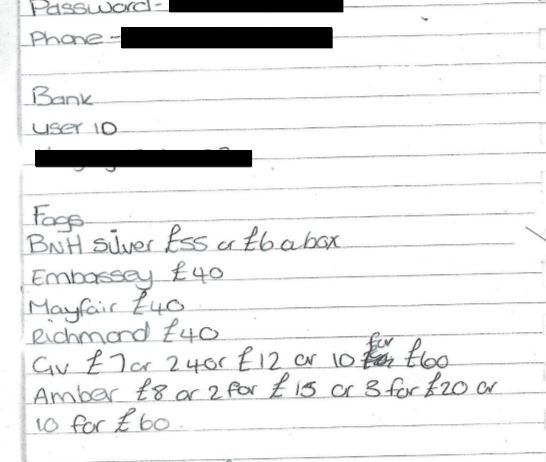 Password-
Phone-
Bank
user ID
Fags
BNH silver £55 or £6 a box
Embassey £40
Mayfair £40
Richmond £40
GV £7 or 2 for £12 or 10 for £60
Amber £8 or 2 for £15 or 3 for £20 or
10 for £60